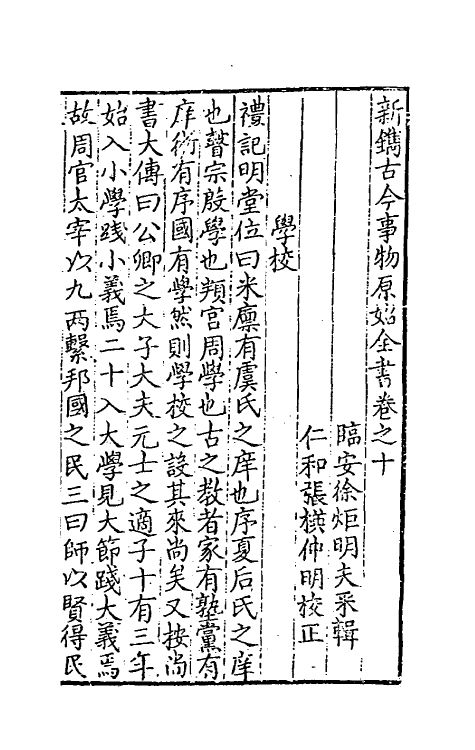 新鐫古今事物原始全書卷之十
臨安徐炬明夫采輯
仁和張模仲明校正
學校
禮記明堂位曰米廩有虞氏之庠也序夏后氏之庠
也瞽宗殷學也頖宮周學也古之教者家有塾黨有
庠術有序國有學然則學校之設其來尚矣又按尚
書大傳曰公卿之大子大夫元士之適子十有三年
始入小學踐小義焉二十入大學見大節踐大義焉
故周官太宰以九两繫邦國之民三曰師以賢得民